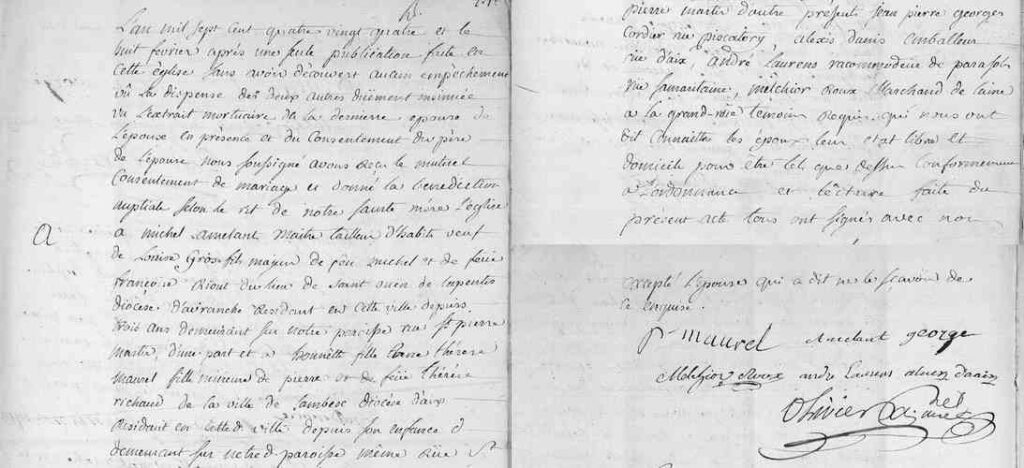 L'an mil sept cent quatre vingt quatre et le
huit fevrier après une seule publication faite en
cette église sans avoir découvert aucun empechement
vû La dispense des deux autres düement
vu L'extrait mortuaire de la derniere epouse de
L'epoux en présence et du Consentement du père
de L'epouse nous soussigné avons Reçu le mutuel
Consentement de mariage et donné la benediction
nuptiale selon le rit de notre sainte mère L'eglise
a
à michel amelant maitre tailleur d'habits veuf
de Louise Gros fils majeur de feu michel et de feüe
françoise du Lieu de Saint ouen de
diocèse d'avranche Residant en cette ville depuis
trois ans demeurant sur notre paroisse rue st pierre
martir, d'une part et à honnette fille thérèse
maurel fille mineure de pierre et de feüe thérèse
richaud de la ville de Lambesc diocèse d'aix
Residant en cette ville depuis son enfance et
demeurant sur notre paroisse même Rüe St
pierre martir d'autre présents jean pierre georges
Cordier rüe piscatory, alexis emballeur
rüe d'aix, andré Laurens racommodeur de parasols
rüe samaritaine, melchior Roux Marchand de laine
a la grand-rüe témoins Requis qui nous ont
dit Connaitre les époux leur etat libre et
domicile pour être tel que dessus Conformement
a L'ordonnance et lecture faite du
present acte tous ont signés avec nous
excepté L'epouse qui a dit ne le sçavoir de
ce enquise.
p maurel amelant george
Melchior Roux andre Laurens
Olivier